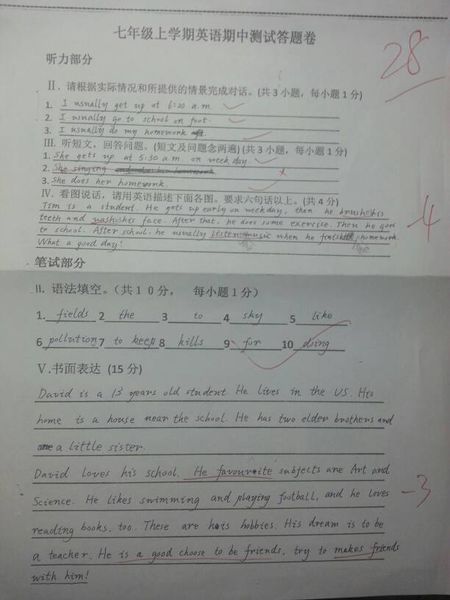 七年级上学期英语期中测试答题卷
28
听力部分
II. 请根据实际情况和所提供的情景完成对话。(共3小题，每小题1分)
1. I usually get up at 6:20 a.m.
2. I usually go to school on foot.
3. I usually do my homework
III. 听短文，回答问题。(短文及问题念两遍)(共3小题，每小题1分)
1. She gets up at 5:50 a.m. on weekday
2. She singing
3. She does her homework
IV. 看图说话，请用英语描述下面各图。要求六句话以上。(共4分)
Tom is a student. He gets up early on weekday, then he brushes his
teeth and washes his face. After that, he does some exercise. Then he goes
to school. After school, he usually listen music when he homework.
What a good day!
-4
笔试部分
II. 语法填空。（共10分， 每小题1分）
1. fields 2 the 3 to 4 sky 5 like
6 pollution 7 to keep 8 kills 9 for 10 doing
V. 书面表达 (15分)
David is a 13 years old student He lives in the US. His
home is a house near the school. He has two elder brothers and
a little sister.
David loves his school. He favourite subjects are Art and
Science. He likes swimming and playing football, and he loves
reading books, too. These are his hobbies. His dream is to be
a teacher. He is a good choose to be friends, try to makes friends
with him!
-3